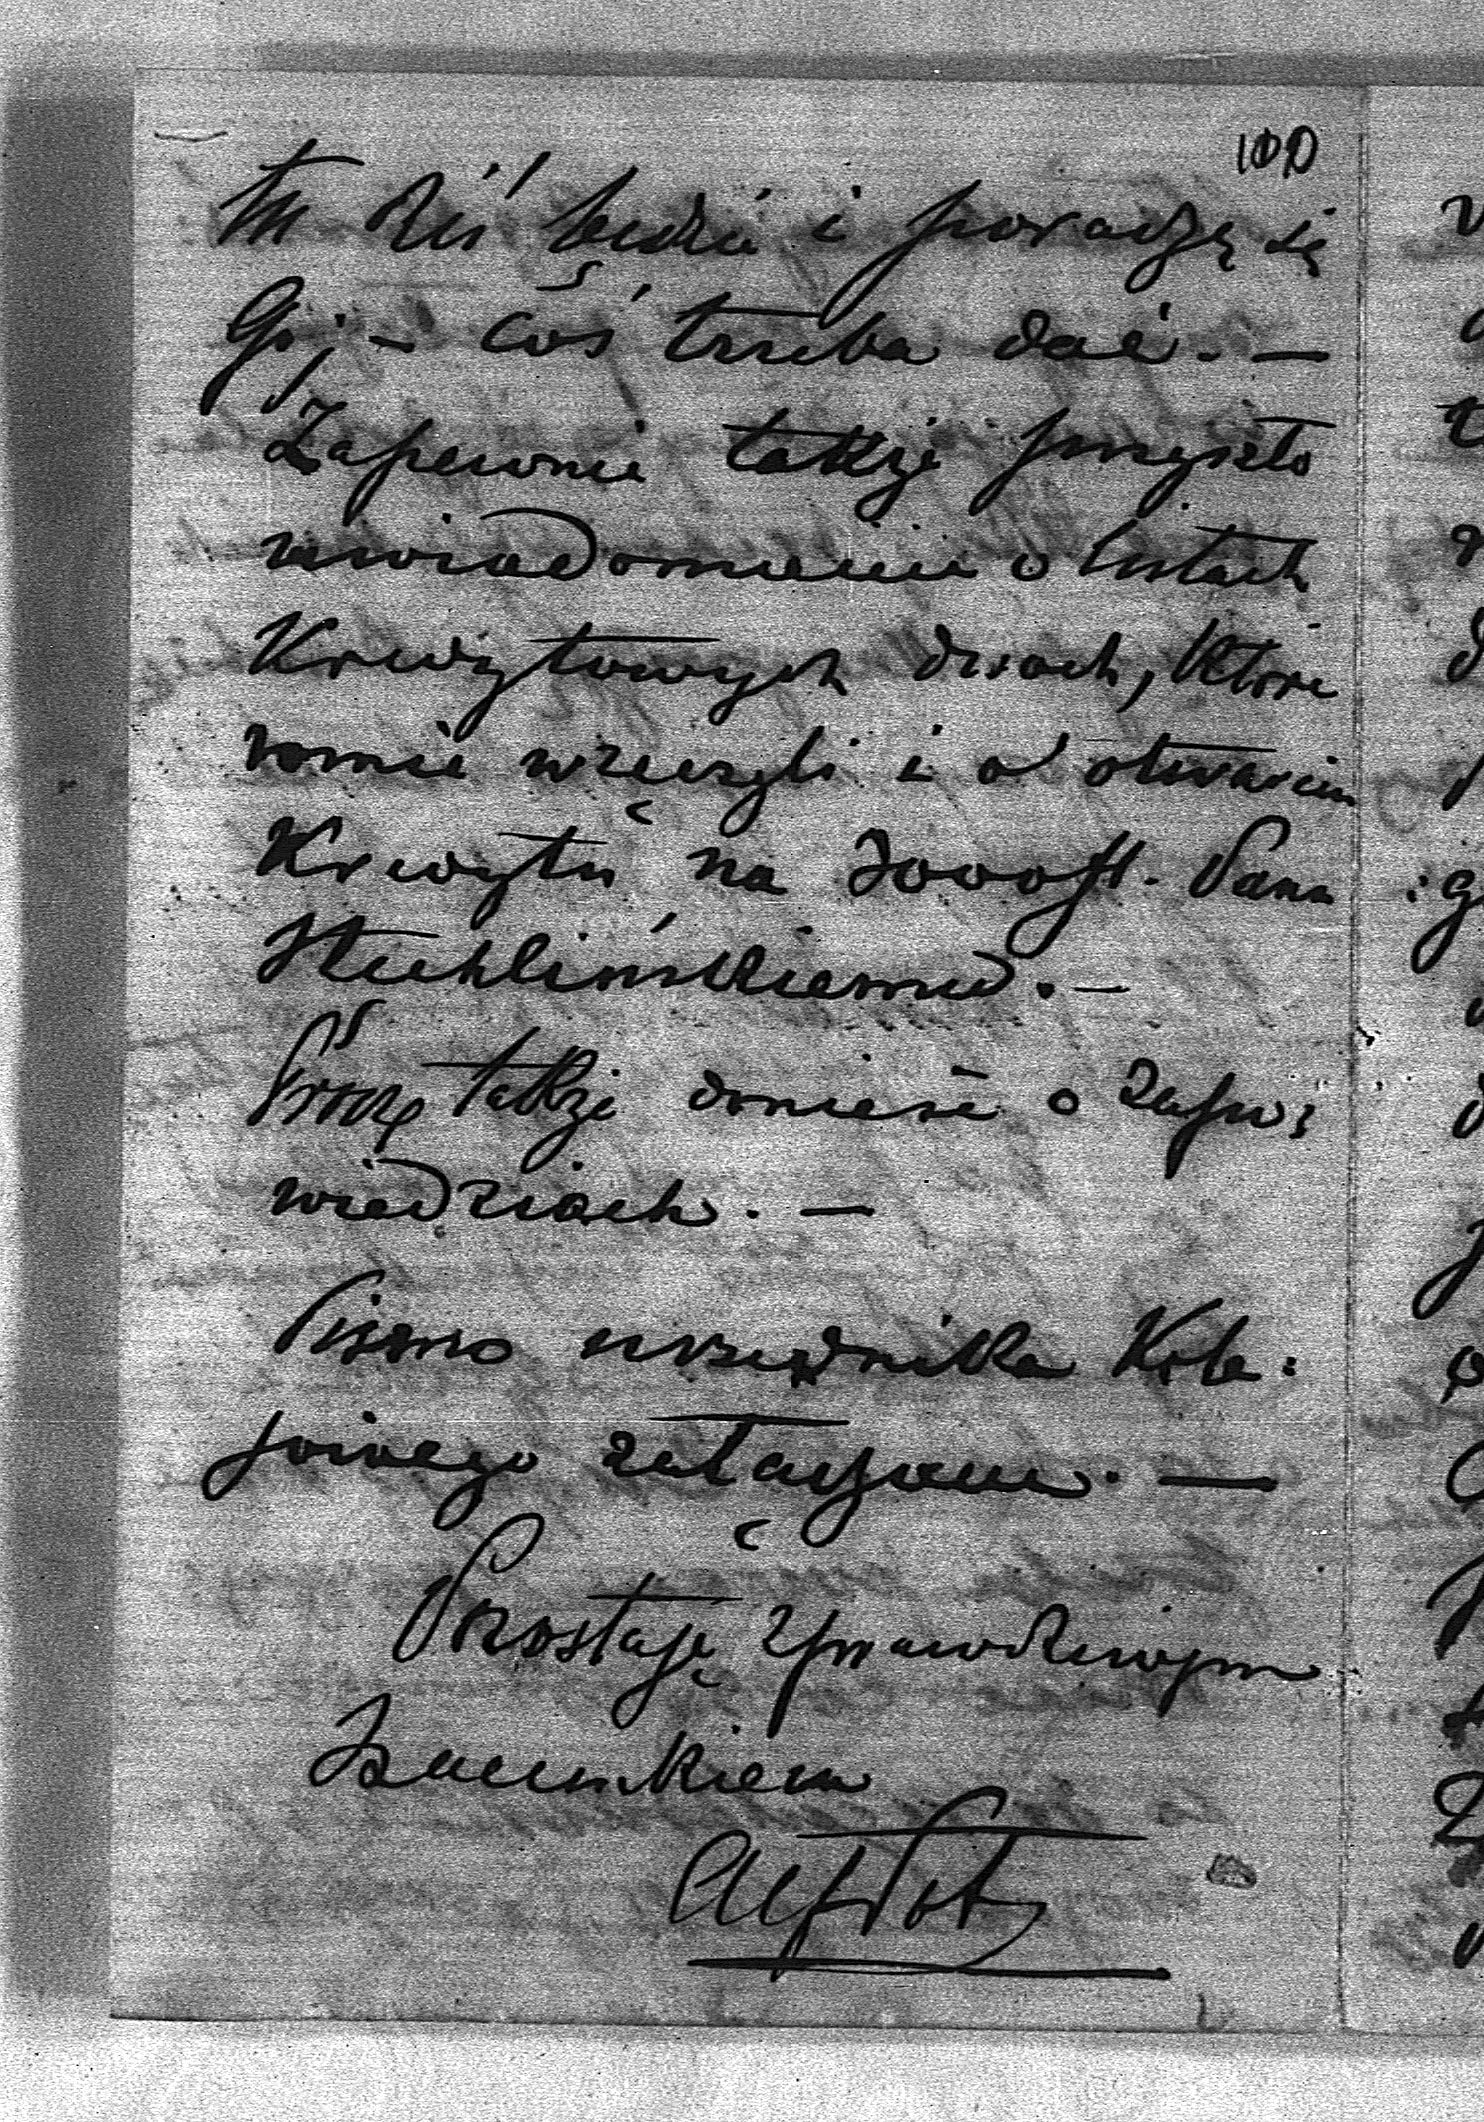 100
tu dziś będzie i poradzę się
Go; – coś trzeba dać. –
Zapewne także przyszło
uwiadomienie o listach
Kredytowych dwóch, które
mnie wręczyli i o otwarciu
Kredytu na 3000 fl. Panu
Stuchlińskiemu. –
Proszę także donieść o zapo:
wiedziach. –
Pismo urzędnika Kole:
jowego załączam. –
Pozostaję z prawdziwym
szacunkiem